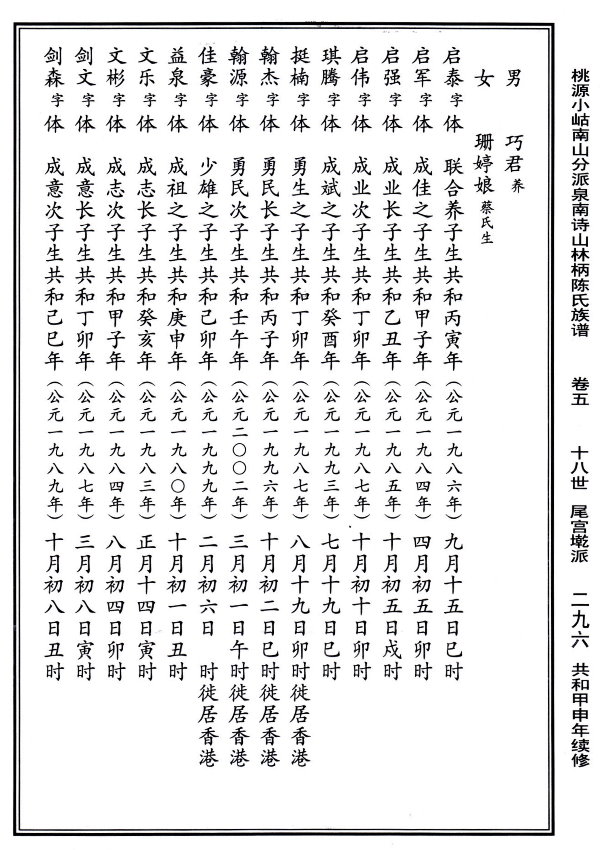 桃源小岵南山分派泉南诗山林柄陈氏族谱 卷五 十八世 尾宫墘派 二九六 共和甲申年续修
男 巧君 养
女 珊婷娘 蔡氏生
启泰 字 体 联合养子生共和丙寅年(公元一九八六年)九月十五日巳时
启军 字 体 成佳之子生共和甲子年(公元一九八四年)四月初五日卯时
启强 字 体 成业长子生共和乙丑年(公元一九八五年)十月初五日戍时
启伟 字 体 成业次子生共和丁卯年(公元一九八七年)十月初十日卯时
琪腾 字 体 成斌之子生共和癸酉年(公元一九九三年)七月十九日巳时
挺楠 字 体 勇生之子生共和丁卯年(公元一九八七年)八月十九日卯时徙居香港
翰杰 字 体 勇民长子生共和丙子年(公元一九九六年)十月初二日巳时徙居香港
翰源 字 体 勇民次子生共和壬午年(公元二〇〇二年)三月初一日午时徙居香港
佳豪 字 体 少雄之子生共和己卯年(公元一九九九年)二月初六日 时徙居香港
益泉 字 体 成祖之子生共和庚申年(公元一九八〇年)十月初一日丑时
文乐 字 体 成志长子生共和癸亥年(公元一九八三年)正月十四日寅时
文彬 字 体 成志次子生共和甲子年(公元一九八四年)八月初四日卯时
剑文 字 体 成意长子生共和丁卯年(公元一九八七年)三月初八日寅时
剑森 字 体 成意次子生共和己巳年(公元一九八九年)十月初八日丑时